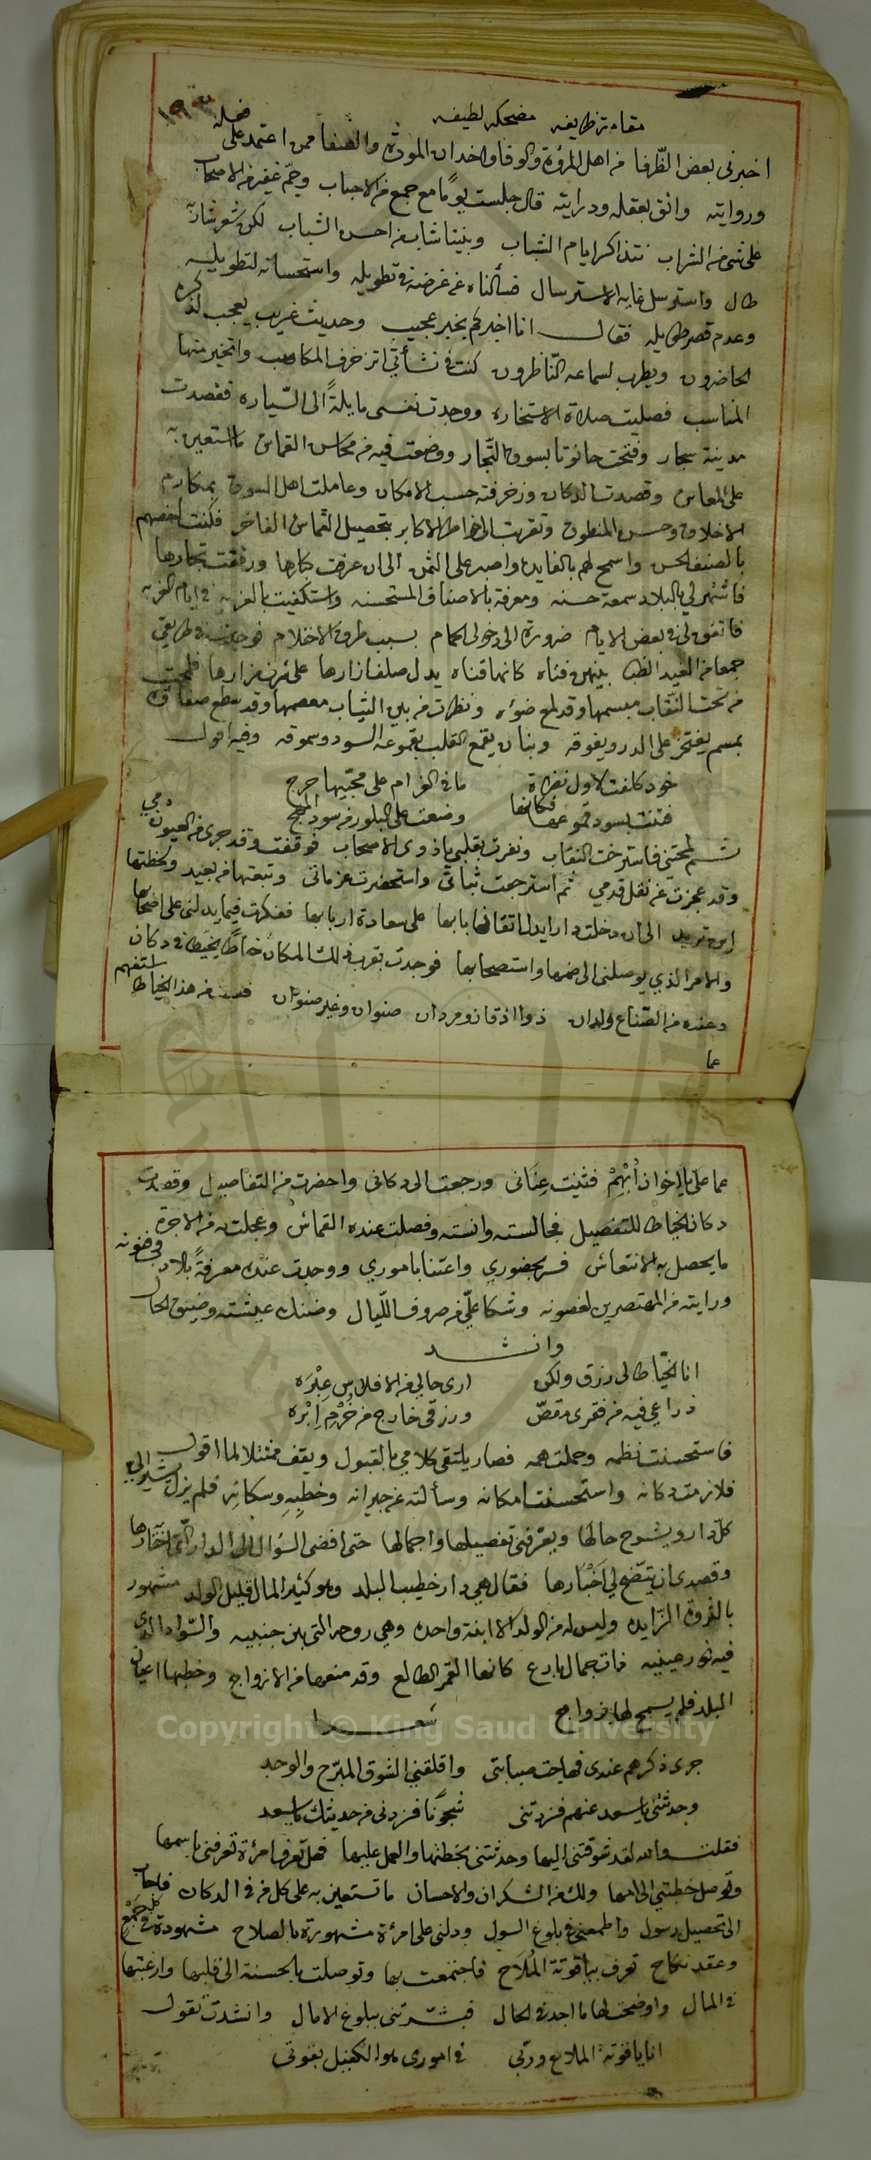 مقامة ظريفه مضحكه لطيفه
١٩
اخبرنى بعض الظرفا من اهل المرؤة والوفا واخدان المودة والصفا ممن اعتمد على فضله
وروايته واثق بعقله ودرايته قال جلست يومًا مع جمع من الاحباب وجمّ غفير من الاصحاب
على شى من الشراب نتذاكر ايام الشباب وبيننا شاب من احسن الشباب لكن شعر شاربه
طال واسترسل غاية الاسترسال فسألناه عن غرضه فى تطويله واستحسانه لتطويله
وعدم قصر طايله فقال انا اخبركم بخبر عجيب وحديث غريب يعجب لذكره
الحاضرون ويطرب لسماعه النّاظرون كنت فى نشأتى اتزخرف المكاسب واتخير منها
المناسب فصليت صلاة الاستخاره ووجدت نفسى مايلةً الى السّياره فقصدت
مدينة سنجار وفتحت حانوتا بسوق التجار ووضعت فيه من محاسن القماش ما استعين به
على المعاش وقصدت الدكان وزخرفته حسب الامكان وعاملت اهل السوق بمكارم
الاخلاق وحسن المنطوق وتقربت الى خواطر الاكابر بتحصيل القماش الفاخر فكنت اخصهم
بالصنف الحسن واسمح لهم بالفايده واصبر على الثمن الى ان عرفت كبارها ورافقت تجارها
فاشتهر لى بالبلاد سمعة حسنه ومعرفة بالاصناف المستحسنه واستكفيت بالعزبه فى ايام الغربه
فاتفق لى فى بعض الايام ضرورة الى دخول الحمام بسبب طروق الاحلام فوجدت فى طريقى
جمعا من الغيد الظبا بينهن فتاه كانها قناه يدل صلف ازارها على شرف مزارها فلمحت
من تحت النقاب مبسمها وقد لمع ضوءه ونظرت من بين الثياب معصمها وقد سطع صفاؤه
بمبسم يفتخر على الدر ويفوقه وبنان يقمع القلب بقموعه السود وسموقه وفيه اقول
خود كلفت لاول نظرة ما فى الغرام على محبّيها حرج
فتنت بسود قموعها فكانها وضعت على البلور من سود المهج
ثم لمحتنى فاسترخت النقاب ونفرت بقلبى يا ذوى الاصحاب فوقفت وقد جرى من العيون دمى
وقد عجزت عن نقل قدمى ثم استرجعت ثباتى واستحضرت عزماتى وتبعتها من بعيد ولحظتها
اين تريد الى ان دخلت دارا يدل اتقان بابها على سعادة اربابها ففكرت فيما يدلنى على اصحابها
والامر الذي يوصلنى الى ضمها واستصحابها فوجدت بقرب ذلك المكان خياطًا يخيط فى دكان
وعنده من الصّناع ولدان ذوا اذقان ومردان صنوان وغير صنوان فقلت من هذا الخياط استفهم
عما
عما على يا اخوان اُبْهِمْ فثنيت عِنَانى ورجعت الى دكانى واحضرت من التفاصيل وقصدت
دكان الخياط للتفصيل فجالسته وانسته وفصلت عنده القماش وعجلت له من الاجره
ما يحصل به الانتعاش فسر بحضوري واعتنا باموري ووجدت عنده معرفةً بالادب وفنونه
ورايته من المهتصرين لغصونه وشكا عليّ من صروف اللّيال وضنك عيشته وضيق الحال
وانشد
انا الخيّاط لى رزق ولكن ارى حالى من الافلاس عِبْرَه
ذراعى فيه من فقرى مقصّ ورزقى خارج من خُرْم اِبْرَه
فاستحسنت نظمه وحملت همه فصار يلتقى كلامي بالقبول ويقف ممتثلا لما اقول
فلازمت دكانه واستحسنت امكانه وسألته عن جيرانه وخطِّه وسكانه فلم يزل يشير الى
كلّ دار ويشرح حالها ويعرّفنى تفصيلها واجمالها حتى افضى السؤال الى الدار الّتى اختارها
وقصدى ان يتّضح لى اَخْبارها فقال هى دار خطيب البلد وهو كثير المال قليل الولد مشهور
بالثروة الزّايده وليس له من الولد الا ابنة واحده وهى روحه التى بين جنبيه والسّواد الذى
فيه نور عينيه ذات جمال بارع كانها القمر الطالع وقد منعها من الازواج وخطبها اعيان
البلد فلم يسمح لها بزواج شعرا
جرى ذكرهم عندى فهاجت صبابتى واقلقنى الشوق المبرّح والوجد
وحدثتنى يا سعد عنهم فزدتنى شجونًا فزدنى من حديثك يا سعد
فقلت والله لقد شوقتنى اليها وحدثتنى بخطبتها والعمل عليها فهل تعرف امرئة تعرفنى باسمها
وتوصل خطبتى الى امها ولك من الشكران والاحسان ما تستعين به على كل من فى الدكان فاجاب
الى تحصيل رسول واطمعنى فى بلوغ السول ودلنى على امرئة مشهورة بالصلاح مشهودة فى كل جَمْعٍ
وعقد نكاح تعرف بياقوتة المُلَاح فاجتمعت بها وتوصلت بالحسنة الى قلبها وارغبتها
فى المال واوضحت لها ما اجد فى الحال فبشّرتنى ببلوغ الامال وانشدت تقول
انا ياقوتة الملاح وربّى فى امورى هو الكفيل بقوتى
Copyright © King Saud University